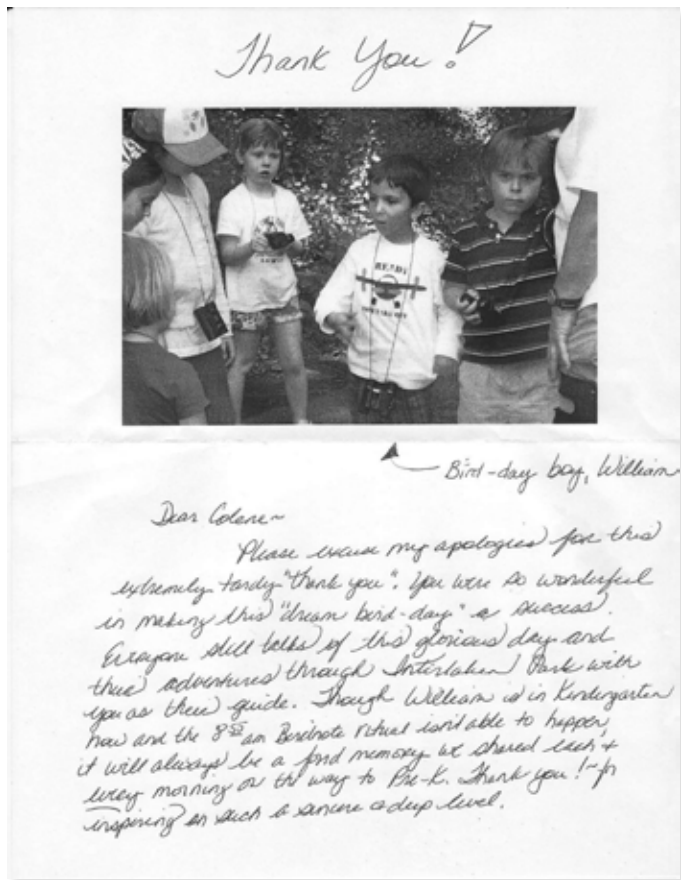 Thank You!
READY
Bird-day boy, William
Dear Colene~
Please excuse my apologies for this
extremely tardy "thank you". You were so wonderful
in making this "dream bird-day" a success.
Everyone still talks of this glorious day and
their adventures through Interlaken Park with
you as their guide. Though William is in Kindergarten
now and the 8:50 am Birdnote ritual isn't able to happen,
it will always be a fond memory we shared each +
every morning on the way to Pre-K. Thank you! ~ for
inspiring on such a sincere & deep level.